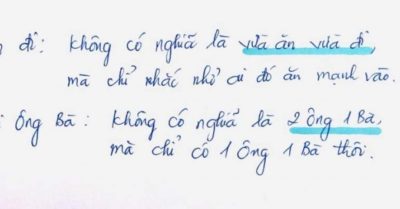 đi: Không có nghĩa là vừa ăn vừa đi,
mà chỉ nhắc nhở ai đó ăn mạnh vào.
Ông Bà: Không có nghĩa là 2 Ông 1 Bà,
mà chỉ có 1 Ông 1 Bà thôi.